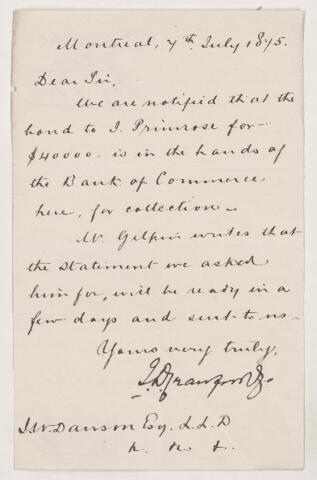 Montreal, 7th July 1875.
Dear Sir,
We are notified that the
bond to J. Primrose for
$40000. is in the hands of
the Bank of Commerce
here, for collection.
Mr. Gilpin writes that
the statement we asked
him for, will be ready in a
few days and sent to us.
Yours very truly,
J. D. Crawford
J.W. Dawson Esq. L.L.D